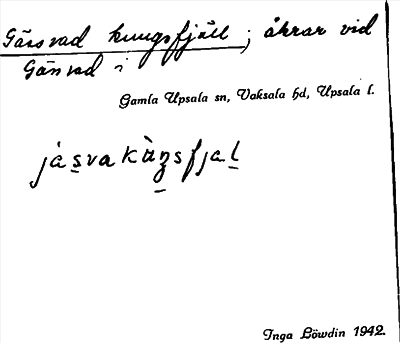 Gäsvad kungsfjäll; åkrar vid
Gäsvad i
Gamla Upsala sn, Vaksala hd, Upsala l.
jasvakàŋsfjal
Inga Löwdin 1942.